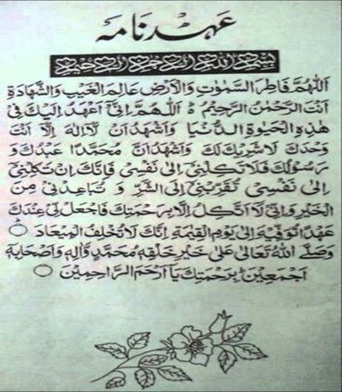 عہد نامہ
بسم الله الرحمن الرحيم
اَللّٰهُمَّ فَاطِرَ السَّمٰوٰتِ وَالْاَرْضِ عَالِمَ الْغَيْبِ وَالشَّهَادَةِ
اَنْتَ الرَّحْمٰنُ الرَّحِيْمُ ط اَللّٰهُمَّ اِنِّىْ اَعْهَدُ اِلَيْكَ فِىْ
هٰذِهِ الْحَيٰوةِ الدُّنْيَا وَاَشْهَدُ اَنْ لَّا اِلٰهَ اِلَّا اَنْتَ
وَحْدَكَ لَا شَرِيْكَ لَكَ وَاَشْهَدُ اَنَّ مُحَمَّدًا عَبْدُكَ وَ
رَسُوْلُكَ فَلَا تَكِلْنِىْ اِلٰى نَفْسِىْ فَاِنَّكَ اِنْ تَكِلْنِىْ
اِلٰى نَفْسِىْ تُقَرِّبْنِىْ اِلَى الشَّرِّ وَ تُبَاعِدْنِىْ مِنَ
الْخَيْرِ وَاِنِّىْ لَا اَتَّكِلُ اِلَّا بِرَحْمَتِكَ فَاجْعَلْ لِّىْ عِنْدَكَ
عَهْدًا تُوَفِّيْهِ اِلٰى يَوْمِ الْقِيٰمَةِ اِنَّكَ لَا تُخْلِفُ الْمِيْعَادَ
وَصَلَّى اللّٰهُ تَعَالٰى عَلٰى خَيْرِ خَلْقِهٖ مُحَمَّدٍ وَّاٰلِهٖ وَاَصْحَابِهٖ
اَجْمَعِيْنَ ط بِرَحْمَتِكَ يَا اَرْحَمَ الرَّاحِمِيْنَ